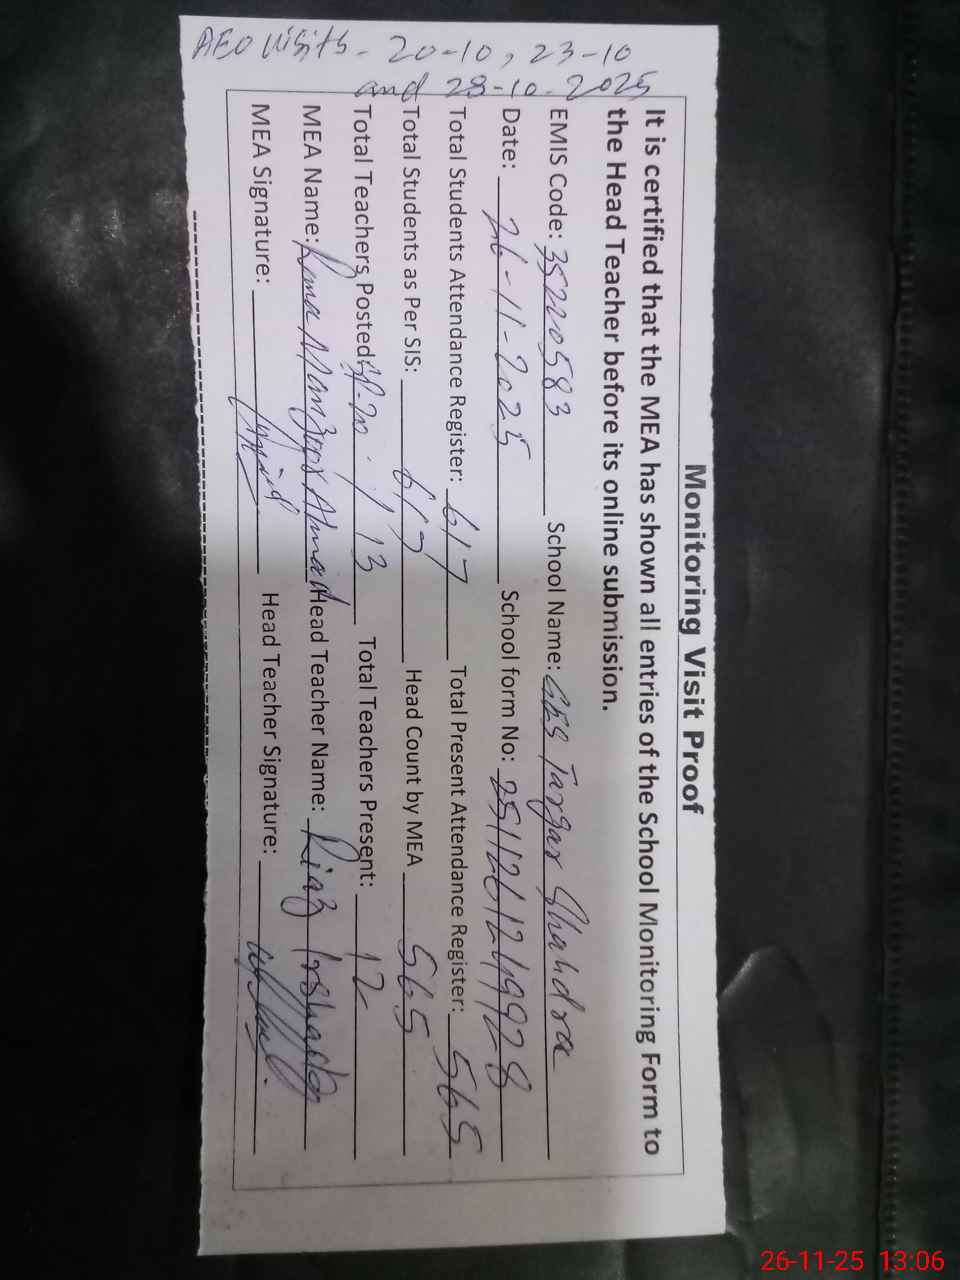 AEO visits - 20-10, 23-10
and 28-10-2025
Monitoring Visit Proof
It is certified that the MEA has shown all entries of the School Monitoring Form to
the Head Teacher before its online submission.
EMIS Code: 35220583 School Name: GES Targar Shahdra
Date: 26-11-2025 School form No: 25112612419928
Total Students Attendance Register: 617 Total Present Attendance Register: 565
Total Students as Per SIS: 617 Head Count by MEA 565
Total Teachers Posted: 13 Total Teachers Present: 12
MEA Name: Rana Manzoor Ahmad Head Teacher Name: Riaz Irshad
MEA Signature: Head Teacher Signature:
26-11-25 13:06